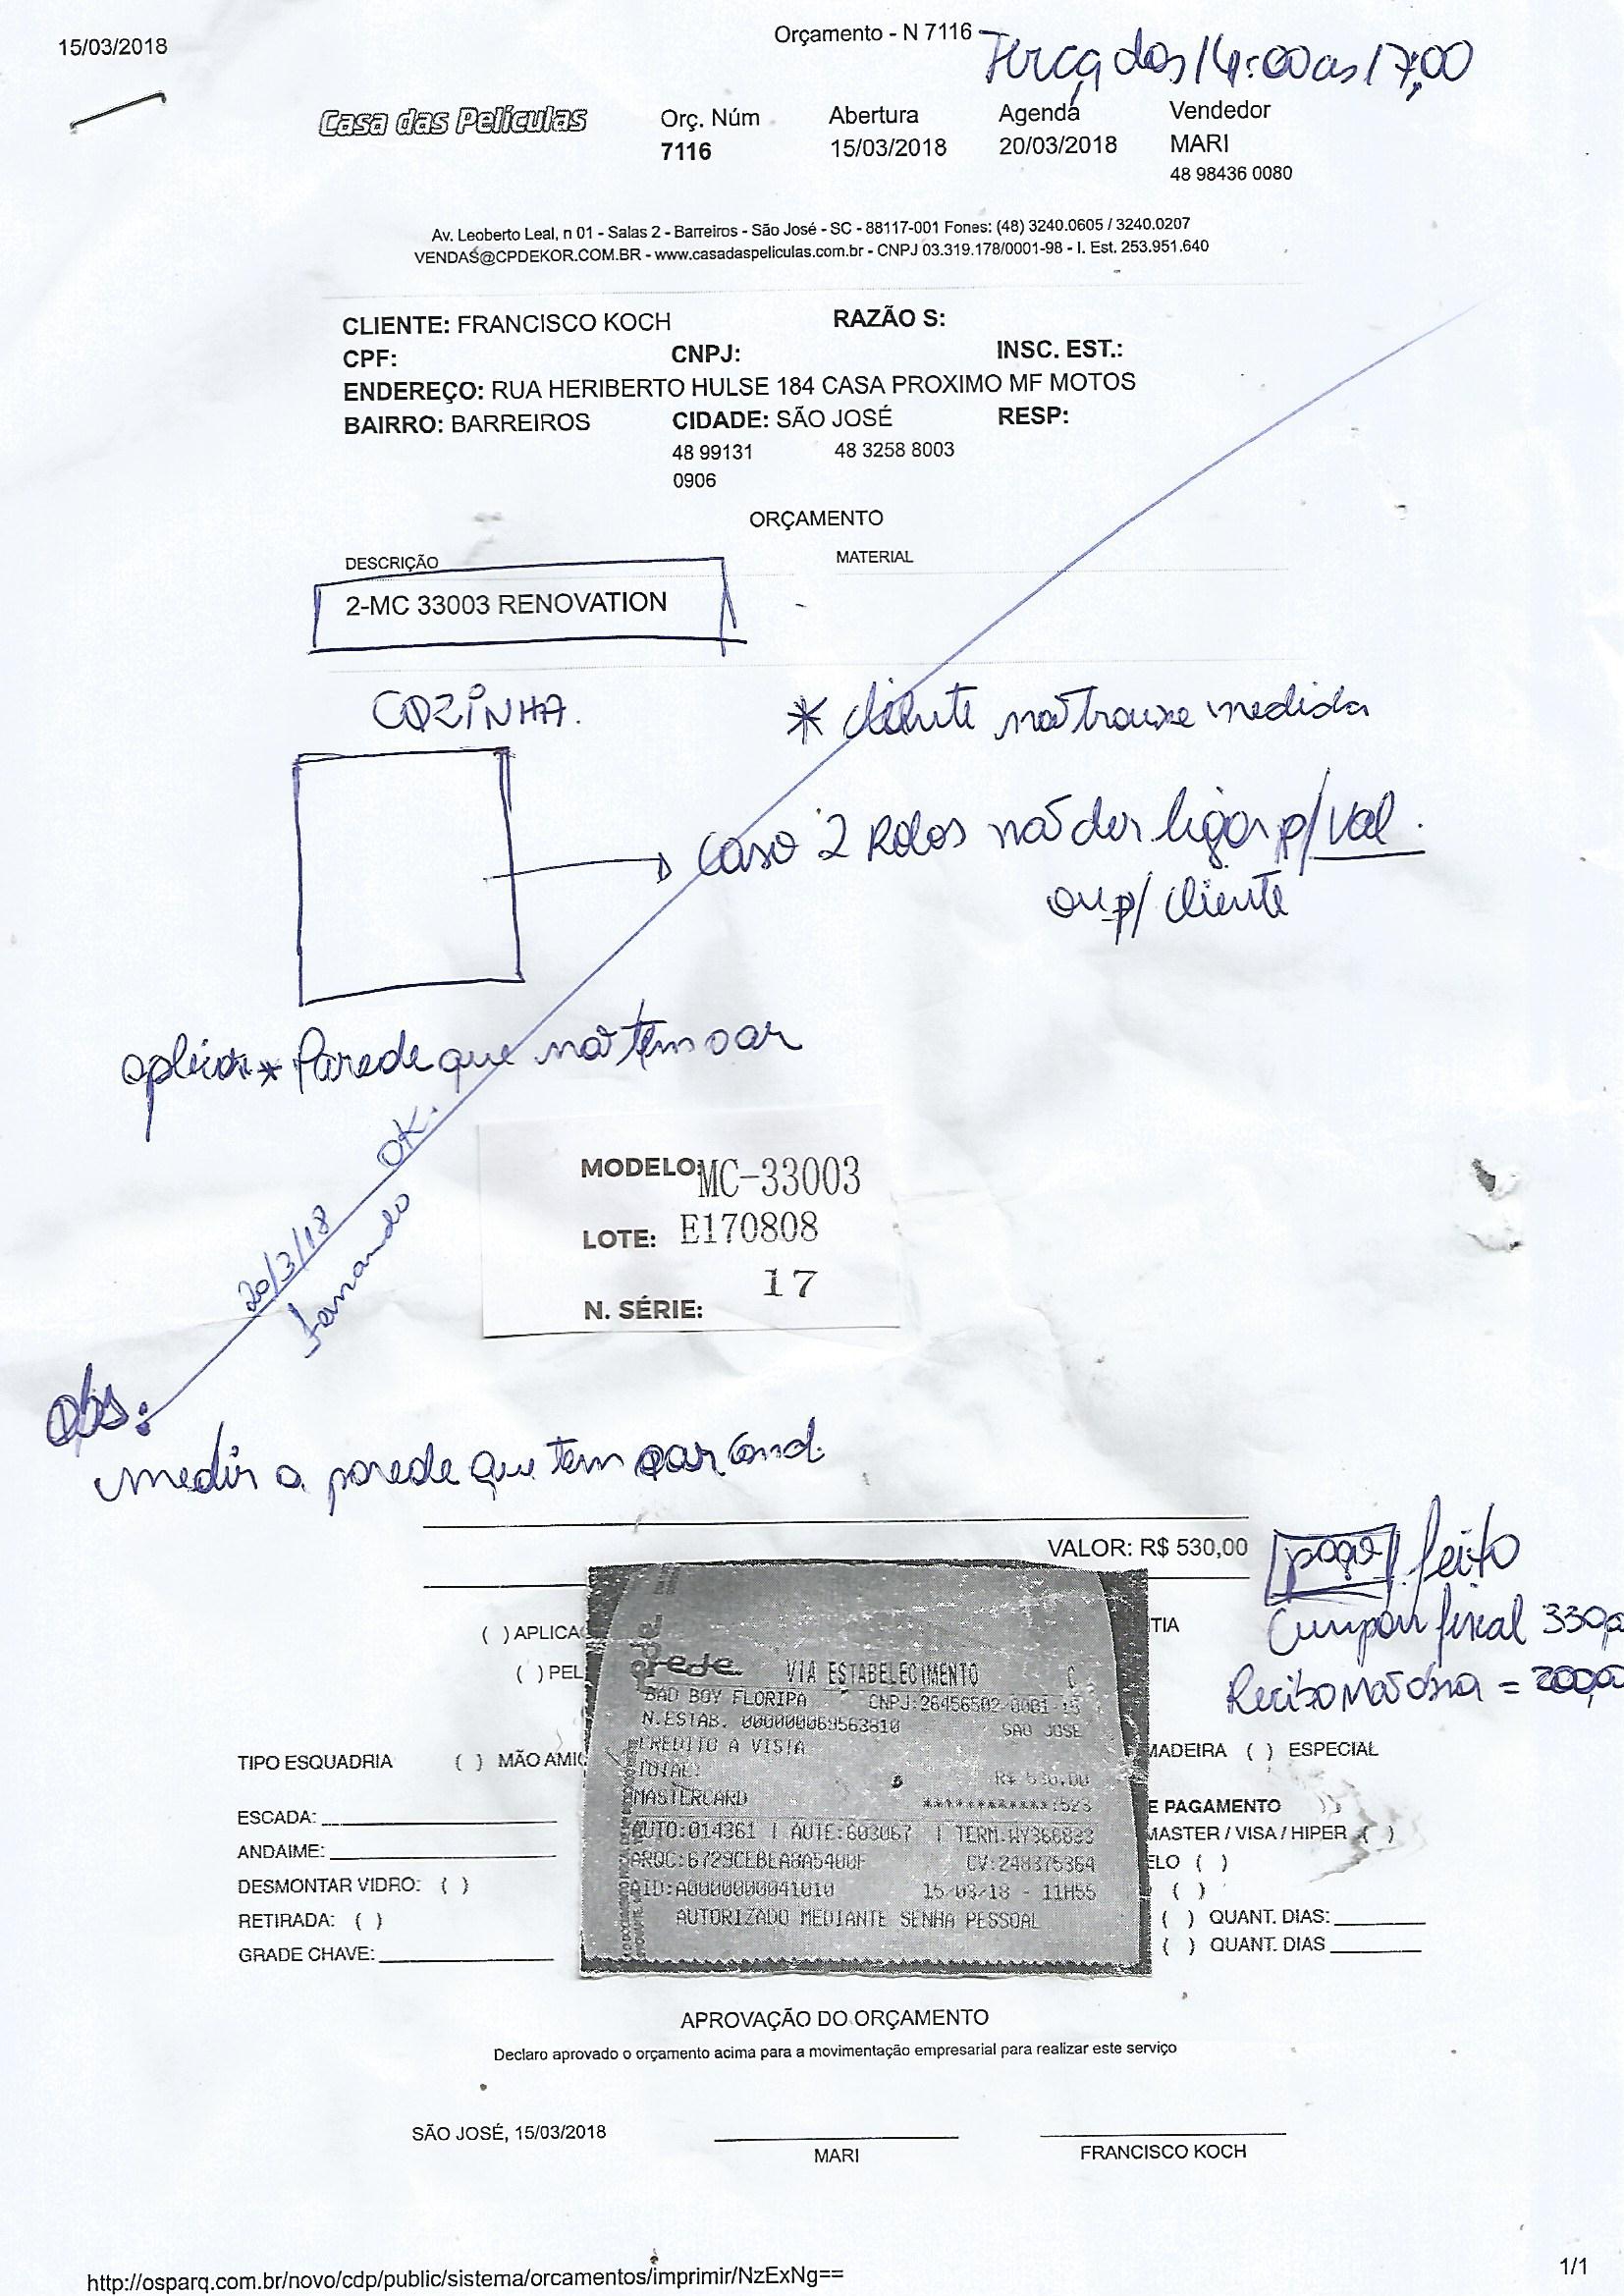 15/03/2018
Orçamento - N 7116
Terça das 14:00 as 17,00
Casa das Películas
Orç. Núm Abertura Agenda Vendedor
7116 15/03/2018 20/03/2018 MARI
48 98436 0080
Av. Leoberto Leal, n 01 - Salas 2 - Barreiros - São José - SC - 88117-001 Fones: (48) 3240.0605 / 3240.0207
VENDAS@CPDEKOR.COM.BR - www.casadaspeliculas.com.br - CNPJ 03.319.178/0001-98 - I. Est. 253.951.640
CLIENTE: FRANCISCO KOCH RAZÃO S:
CPF: CNPJ: INSC. EST.:
ENDEREÇO: RUA HERIBERTO HULSE 184 CASA PROXIMO MF MOTOS
BAIRRO: BARREIROS CIDADE: SÃO JOSÉ RESP:
48 99131 48 3258 8003
0906
ORÇAMENTO
DESCRIÇÃO MATERIAL
2-MC 33003 RENOVATION
COZINHA.
* cliente não trouxe medida
Caso 2 Rolos não der ligar p/ Val.
ou p/ cliente
aplicar * Parede que não tem o ar
OK.
20/3/18
Fernando
MODELO: MC-33003
LOTE: E170808
17
N. SÉRIE:
obs:
medir a parede que tem o ar cond.
VALOR: R$ 530,00
pago feito
Cumpom fiscal 330,0
Recibo mão obra = 200,0
( ) APLICA TIA
( ) PEL
rede VIA ESTABELECIMENTO C
BAD BOY FLORIPA CNPJ:26456502/0001-15
N.ESTAB. 000000069563810 SAO JOSE
CREDITO A VISTA
TOTAL: R$ 530,00
MASTERCARD
AUTO:014361 | AUTE:603067 | TERM:WY366833
CV:248375364
AID:A0000000041010 15/03/18 - 11H55
AUTORIZADO MEDIANTE SENHA PESSOAL
TIPO ESQUADRIA ( ) MÃO AMI MADEIRA ( ) ESPECIAL
ESCADA: E PAGAMENTO
ANDAIME: MASTER / VISA / HIPER ( )
ELO ( )
DESMONTAR VIDRO: ( ) ( )
RETIRADA: ( ) ( ) QUANT. DIAS:
GRADE CHAVE: ( ) QUANT. DIAS
APROVAÇÃO DO ORÇAMENTO
Declaro aprovado o orçamento acima para a movimentação empresarial para realizar este serviço
SÃO JOSÉ, 15/03/2018
MARI FRANCISCO KOCH
http://osparq.com.br/novo/cdp/public/sistema/orcamentos/imprimir/NzExNg== 1/1